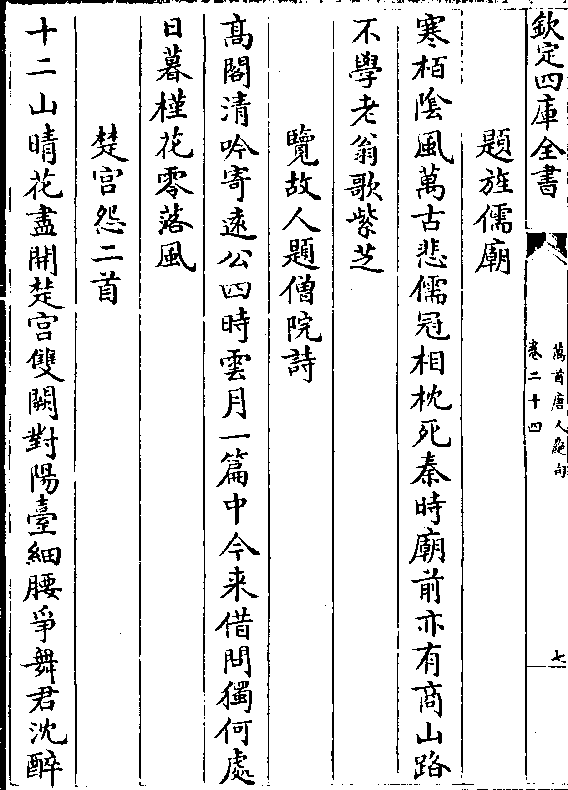 欽定四庫全書
萬首唐人絶句
卷二十四
七
題旌儒廟
寒栢陰風萬古悲儒冠相枕死秦時廟前亦有商山路
不學老翁歌紫芝
覽故人題僧院詩
高閣清吟寄逺公四時雲月一篇中今来借問獨何處
日暮槿花零落風
楚宫怨二首
十二山晴花盡開楚宫雙闕對陽臺細腰爭舞君沈醉